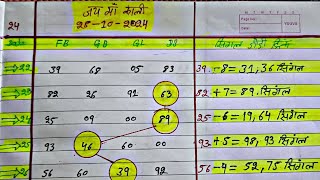 जय माँ काली
24
28-10-2024
Date FB GB GL DS सिंगल जोड़ी
22 39 68 05 83 39-8=31,36 सिंगल
23 82 26 91 63 82+7=89, सिंगल
24 25 09 00 89 25-6=19,64 सिंगल
25 93 46 60 00 93+5=98,93 सिंगल
26 56 60 39 92 56-4=52,75 सिंगल